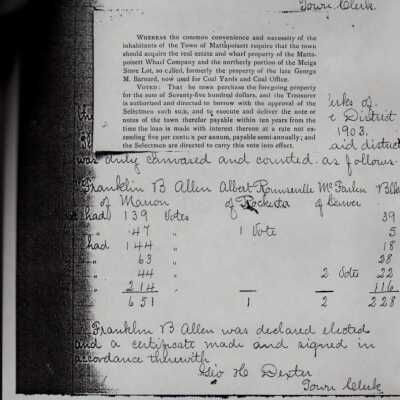 Town Clerk.
WHEREAS the common convenience and necessity of the
inhabitants of the Town of Mattapoisett require that the town
should acquire the real estate and wharf property of the Matta-
poisett Wharf Company and the northerly portion of the Meigs
Store Lot, so called, formerly the property of the late George
M. Barnard, now used for Coal Yards and Coal Office.
VOTED: That he town purchase the foregoing property
for the sum of Seventy-five hundred dollars, and the Treasurer
is authorized and directed to borrow with the approval of the
Selectmen such sum, and to execute and deliver the note or
notes of the town therefor payable within ten years from the
time the loan is made with interest thereon at a rate not ex-
ceeding five per cent per annum, payable semi-annually; and
the Selectmen are directed to carry this vote into effect.
erks of
District
1903,
aid district
was duly canvased and counted. as follows
Franklin B Allen Albert McFarlin
of Marion of of Carver
had 139 Votes 39
" 47 " 1 Vote 5
had 144 " 18
" 63 " 28
" 44 " 2 Vote 22
" 214 " 116
651 1 2 228
Franklin B Allen was declared elected
and a certificate made and signed in
accordance therewith
Geo H Dexter
Town Clerk